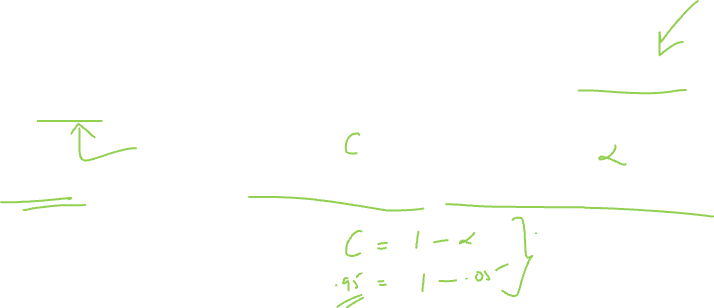 C α
C = 1 - α
.95 = 1 - .05